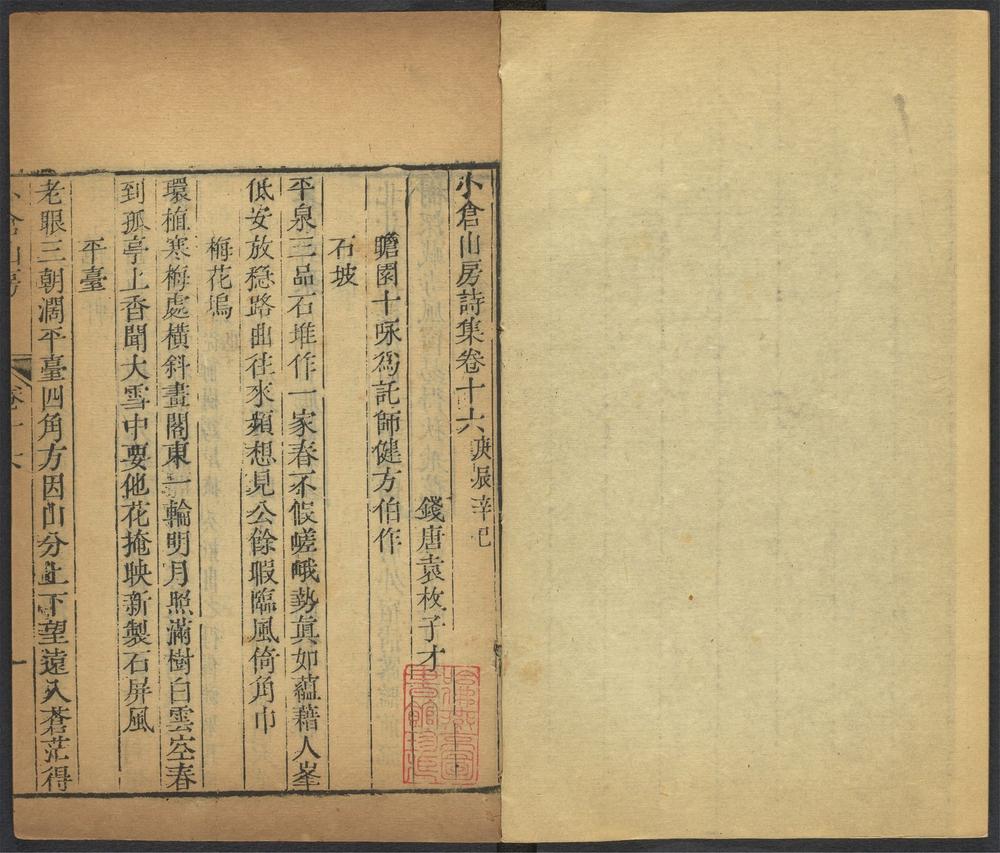 小倉山房詩集卷十六 庚辰辛巳
錢唐袁枚子才
瞻園十咏爲託師健方伯作
石坡
平泉三品石堆作一家春不假嵯峨勢眞如蘊藉人峯
低安放穩路曲往來頻想見公餘暇臨風倚角巾
梅花塢
環植寒梅處橫斜畫閣東一輪明月照滿樹白雲空春
到孤亭上香聞大雪中要他花掩映新製石屏風
平臺
老眼三朝濶平臺四角方因山分上下望遠入蒼茫得
小倉山房
卷十六
一
哈佛大學圖書館珍藏